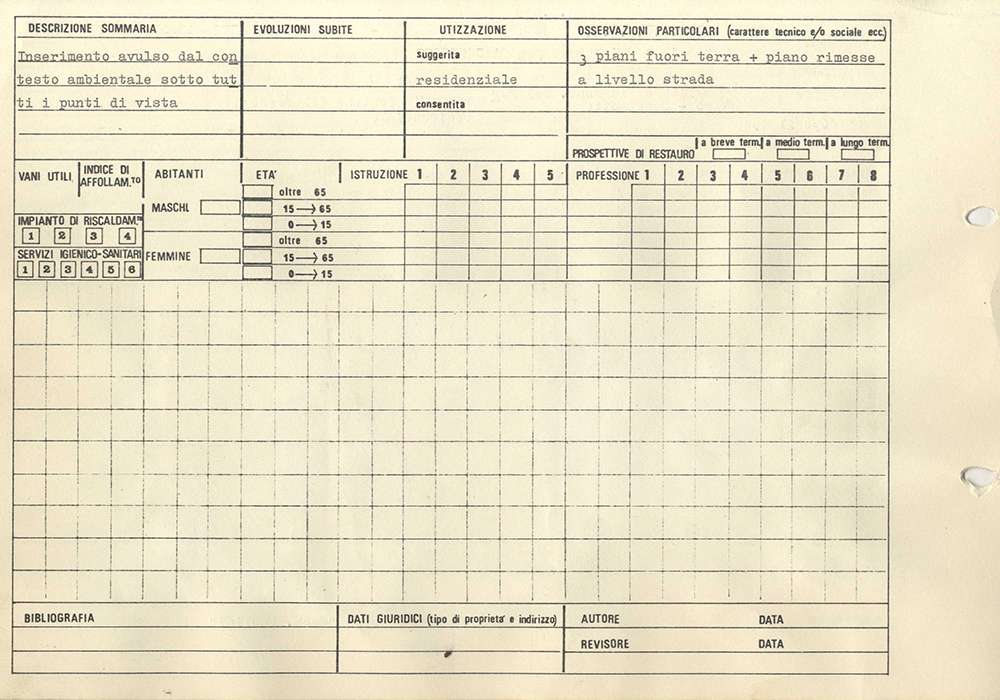 DESCRIZIONE SOMMARIA
Inserimento avulso dal con
testo ambientale sotto tut
ti i punti di vista
EVOLUZIONI SUBITE
UTILIZZAZIONE
suggerita
residenziale
consentita
OSSERVAZIONI PARTICOLARI (carattere tecnico e/o sociale ecc.)
3 piani fuori terra + piano rimesse
a livello strada
PROSPETTIVE DI RESTAURO a breve term. a medio term. a lungo term.
VANI UTILI
INDICE DI
AFFOLLAM.TO
ABITANTI
ETA'
ISTRUZIONE 1 2 3 4 5
PROFESSIONE 1 2 3 4 5 6 7 8
MASCHI
oltre 65
15 → 65
0 → 15
IMPIANTO DI RISCALDAM.TO
1 2 3 4
SERVIZI IGIENICO-SANITARI
1 2 3 4 5 6
FEMMINE
oltre 65
15 → 65
0 → 15
BIBLIOGRAFIA
DATI GIURIDICI (tipo di proprieta' e indirizzo)
AUTORE DATA
REVISORE DATA